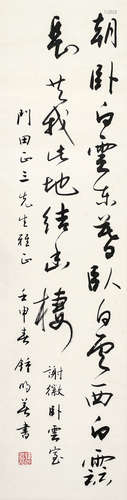 朝卧白雲东暮卧白雲西白雲
長共我此地結幽棲
謝徽卧雲室
門田正三先生雅正
壬申春鍾明善書